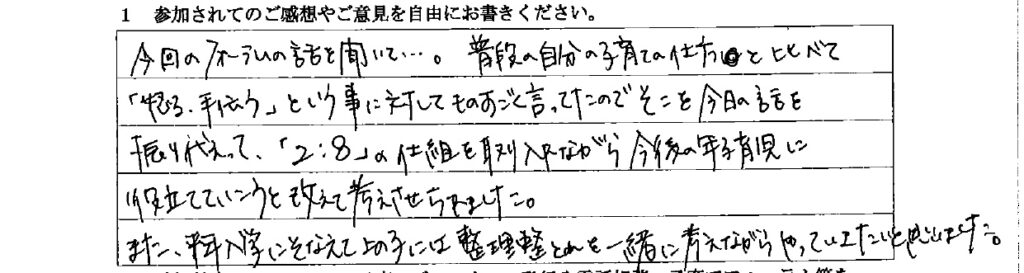 1 参加されてのご感想やご意見を自由にお書きください。
今回のフォーラムの話を聞いて…。普段の自分の子育ての仕方と比べて
「怒る、手伝う」という事に対してものすごく言ってたのでそこを今日の話を
振り代えって、「2:8」の仕組を取り入れながら今後の年子育児に
役立てていこうと改えて考えさせられました。
また、入学にそなえて上の子には整理整とんを一緒に考えながらやっていきたいと思いました。